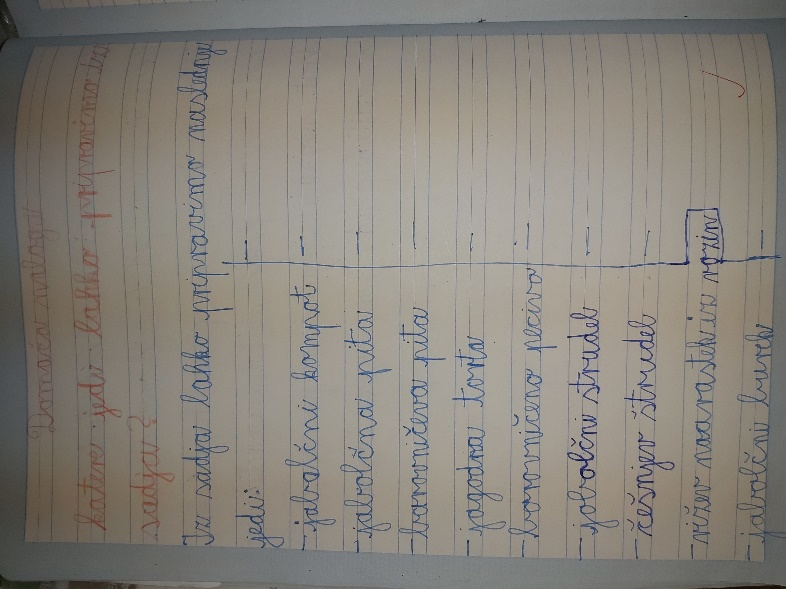 Domača naloga
Katere jedi lahko pripravimo iz
sadja?
Iz sadja lahko pripravimo naslednje
jedi:
- jabolčni kompot -
- jabolčna pita -
- borovničeva pita -
- jagodna torta -
- borovničeno pecivo -
- jabolčni štrudel -
- češnjev štrudel -
- rižev narastek iz rozin
- jabolčni burek -